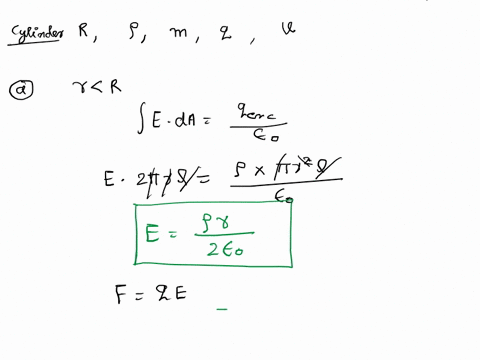 Cylinder R, ρ, m, q, v
(a) r < R
∫E·dA = qenc/ε₀
E · 2πrl = ρ × πr²l/ε₀
E = ρr/2ε₀
F = qE